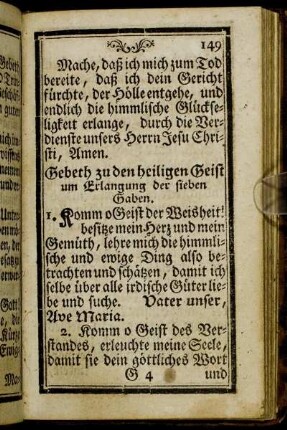 149
Mache, daß ich mich zum Tod
bereite, daß ich dein Gericht
fürchte, der Hölle entgehe, und
endlich die himmlische Glückse-
ligkeit erlange, durch die Ver-
dienste unsers Herrn Jesu Chri-
sti, Amen.
Gebeth zu den heiligen Geist
um Erlangung der sieben
Gaben.
1. Komm o Geist der Weisheit!
besitze mein Herz und mein
Gemüth, lehre mich die himmli-
sche und ewige Ding also be-
trachten und schätzen, damit ich
selbe über alle irdische Güter lie-
be und suche. Vater unser,
Ave Maria.
2. Komm o Geist des Ver-
standes, erleuchte meine Seele,
damit sie dein göttliches Wort
G 4 und